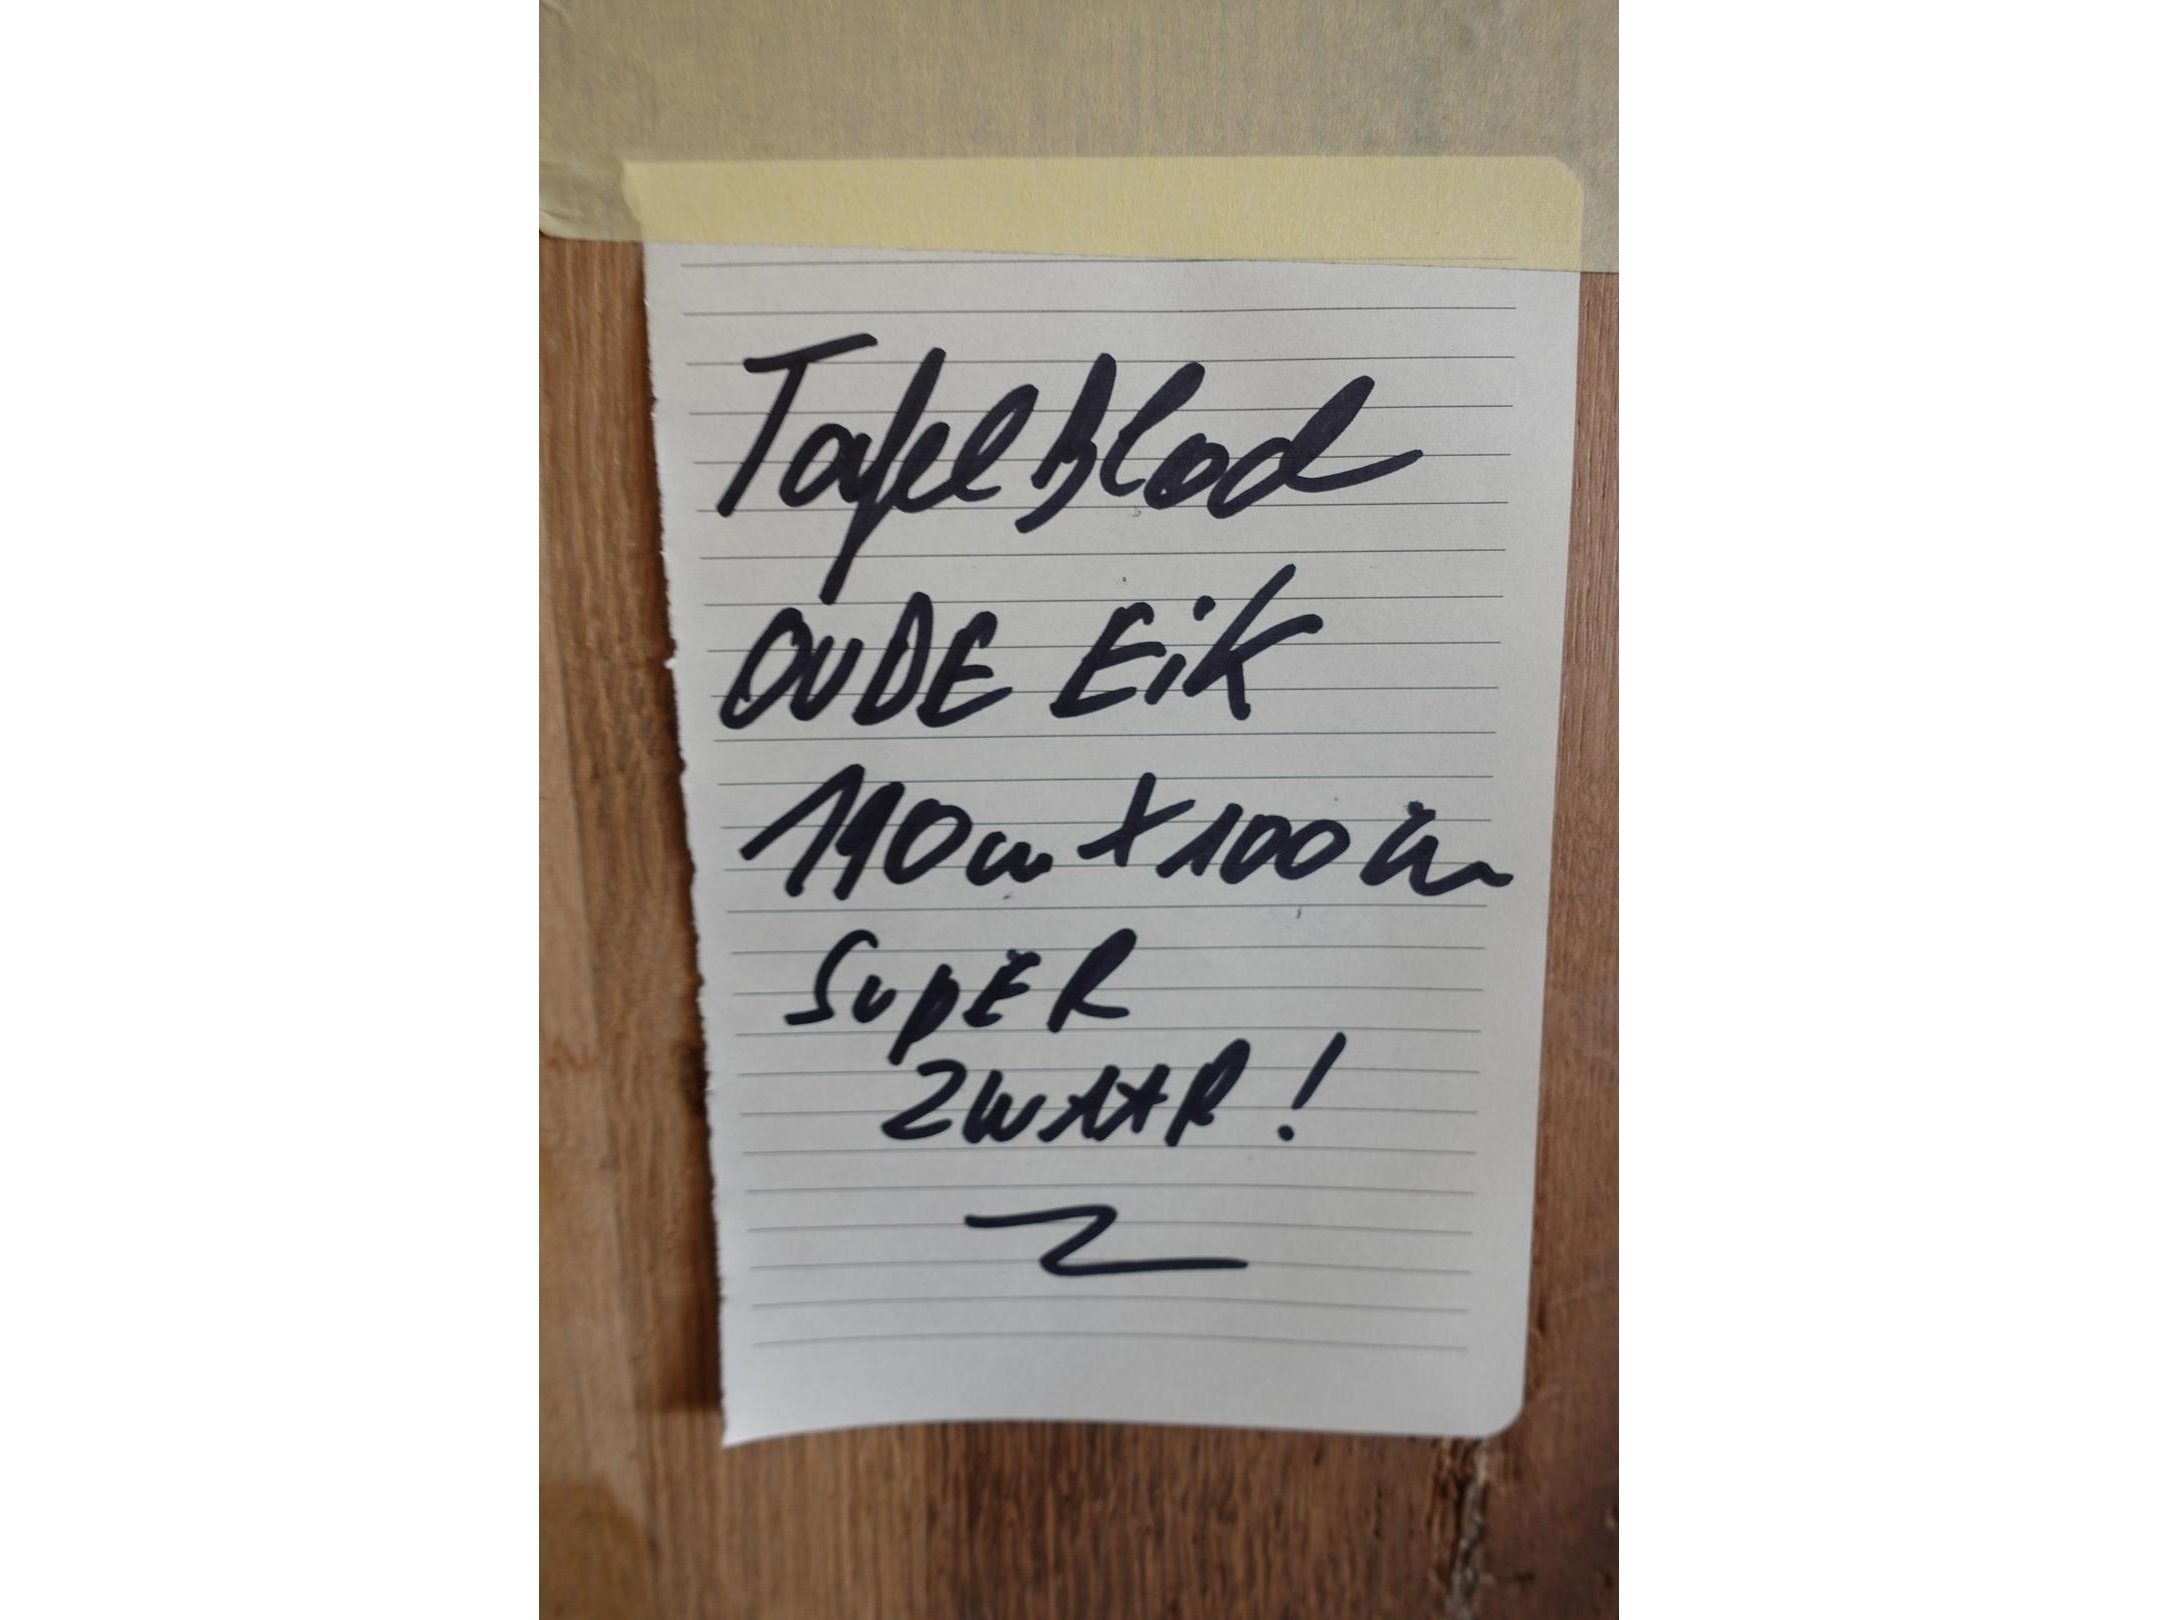 Tafelblad
OUDE EiK
190cm X 100 cm
SUpER
ZWAAR!